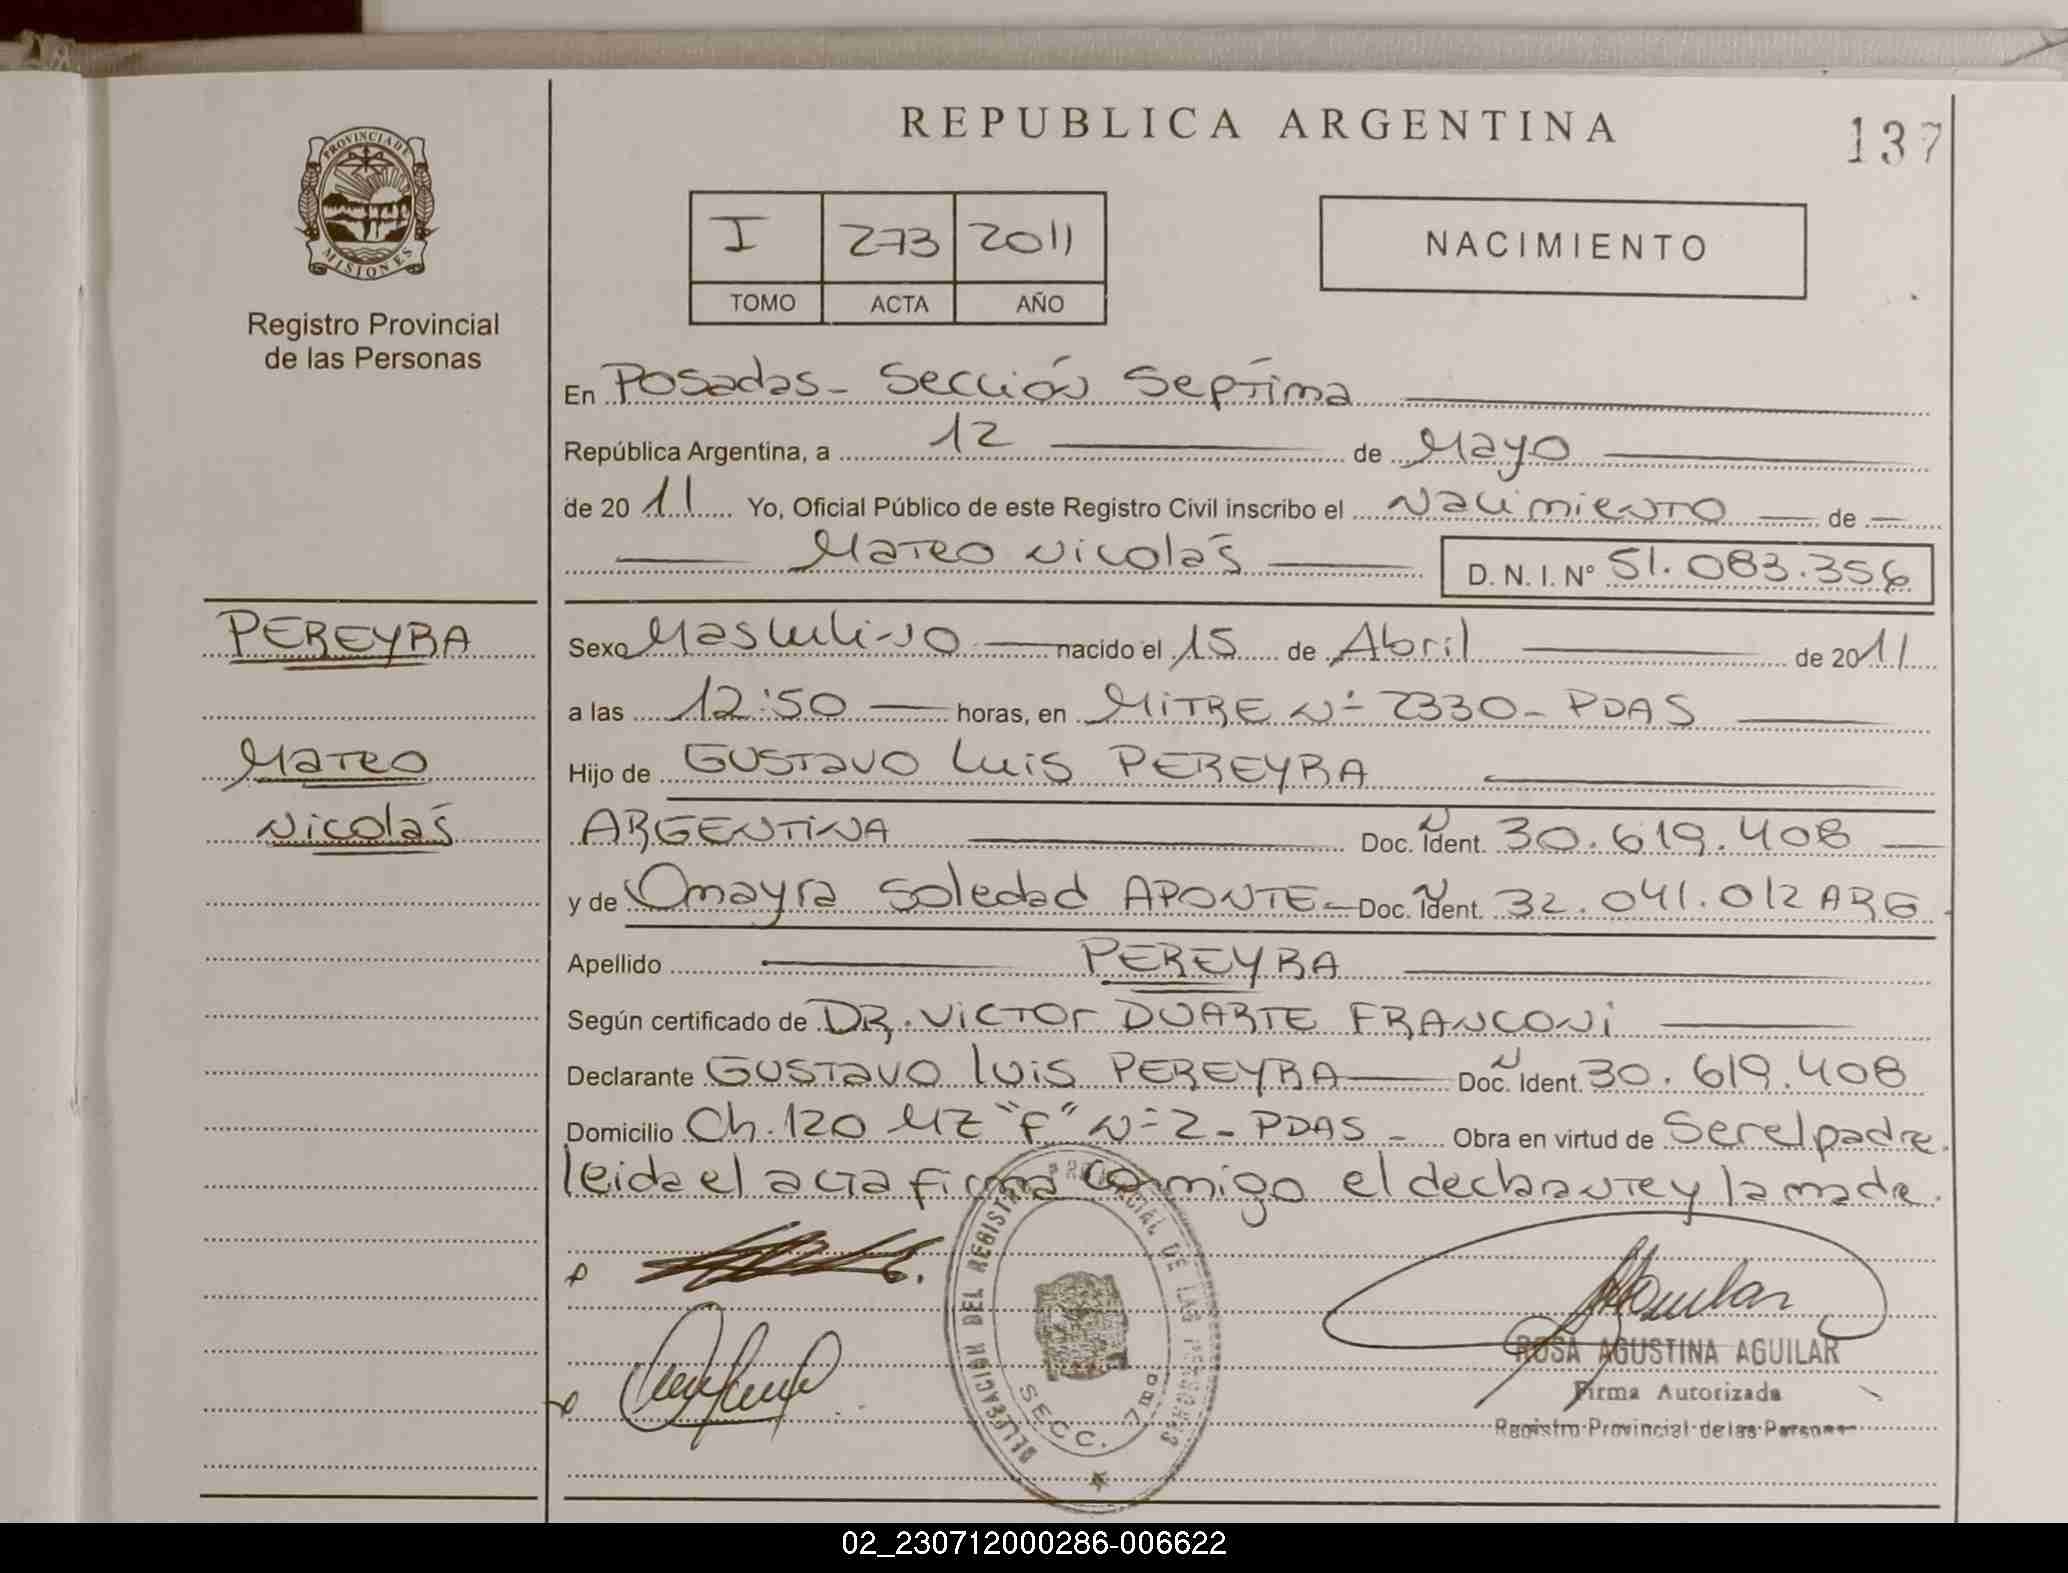 REPUBLICA ARGENTINA
137
PROVINCIA DE
MISIONES
Registro Provincial
de las Personas
I 273 2011
TOMO ACTA AÑO
NACIMIENTO
En Posadas - Sección Séptima
República Argentina, a 12 de Mayo
de 2011 Yo, Oficial Público de este Registro Civil inscribo el Nacimiento de
Mateo Nicolás D. N. I. Nº 51.083.356
PEREYRA
Mateo
Nicolás
Sexo Masculino nacido el 15 de Abril de 2011
a las 12:50 horas, en MITRE Nº 2330 - PDAS
Hijo de GUSTAVO Luis PEREYRA
ARGENTINA Doc. N Ident. 30.619.408
y de Omayra Soledad APONTE - Doc. N Ident. 32.041.012 ARG.
Apellido PEREYRA
Según certificado de DR. VICTOR DUARTE FRANCONI
Declarante GUSTAVO LUIS PEREYRA Doc. N Ident. 30.619.408
Domicilio Ch. 120 MZ "F" Nº 2 - PDAS - Obra en virtud de Ser el padre.
leida el acta firma conmigo el declarante y la madre.
DELEGACION DEL REGISTRO PROVINCIAL DE LAS PERSONAS
SECC. 7ma
ROSA AGUSTINA AGUILAR
Firma Autorizada
Registro Provincial de las Personas
02_230712000286-006622